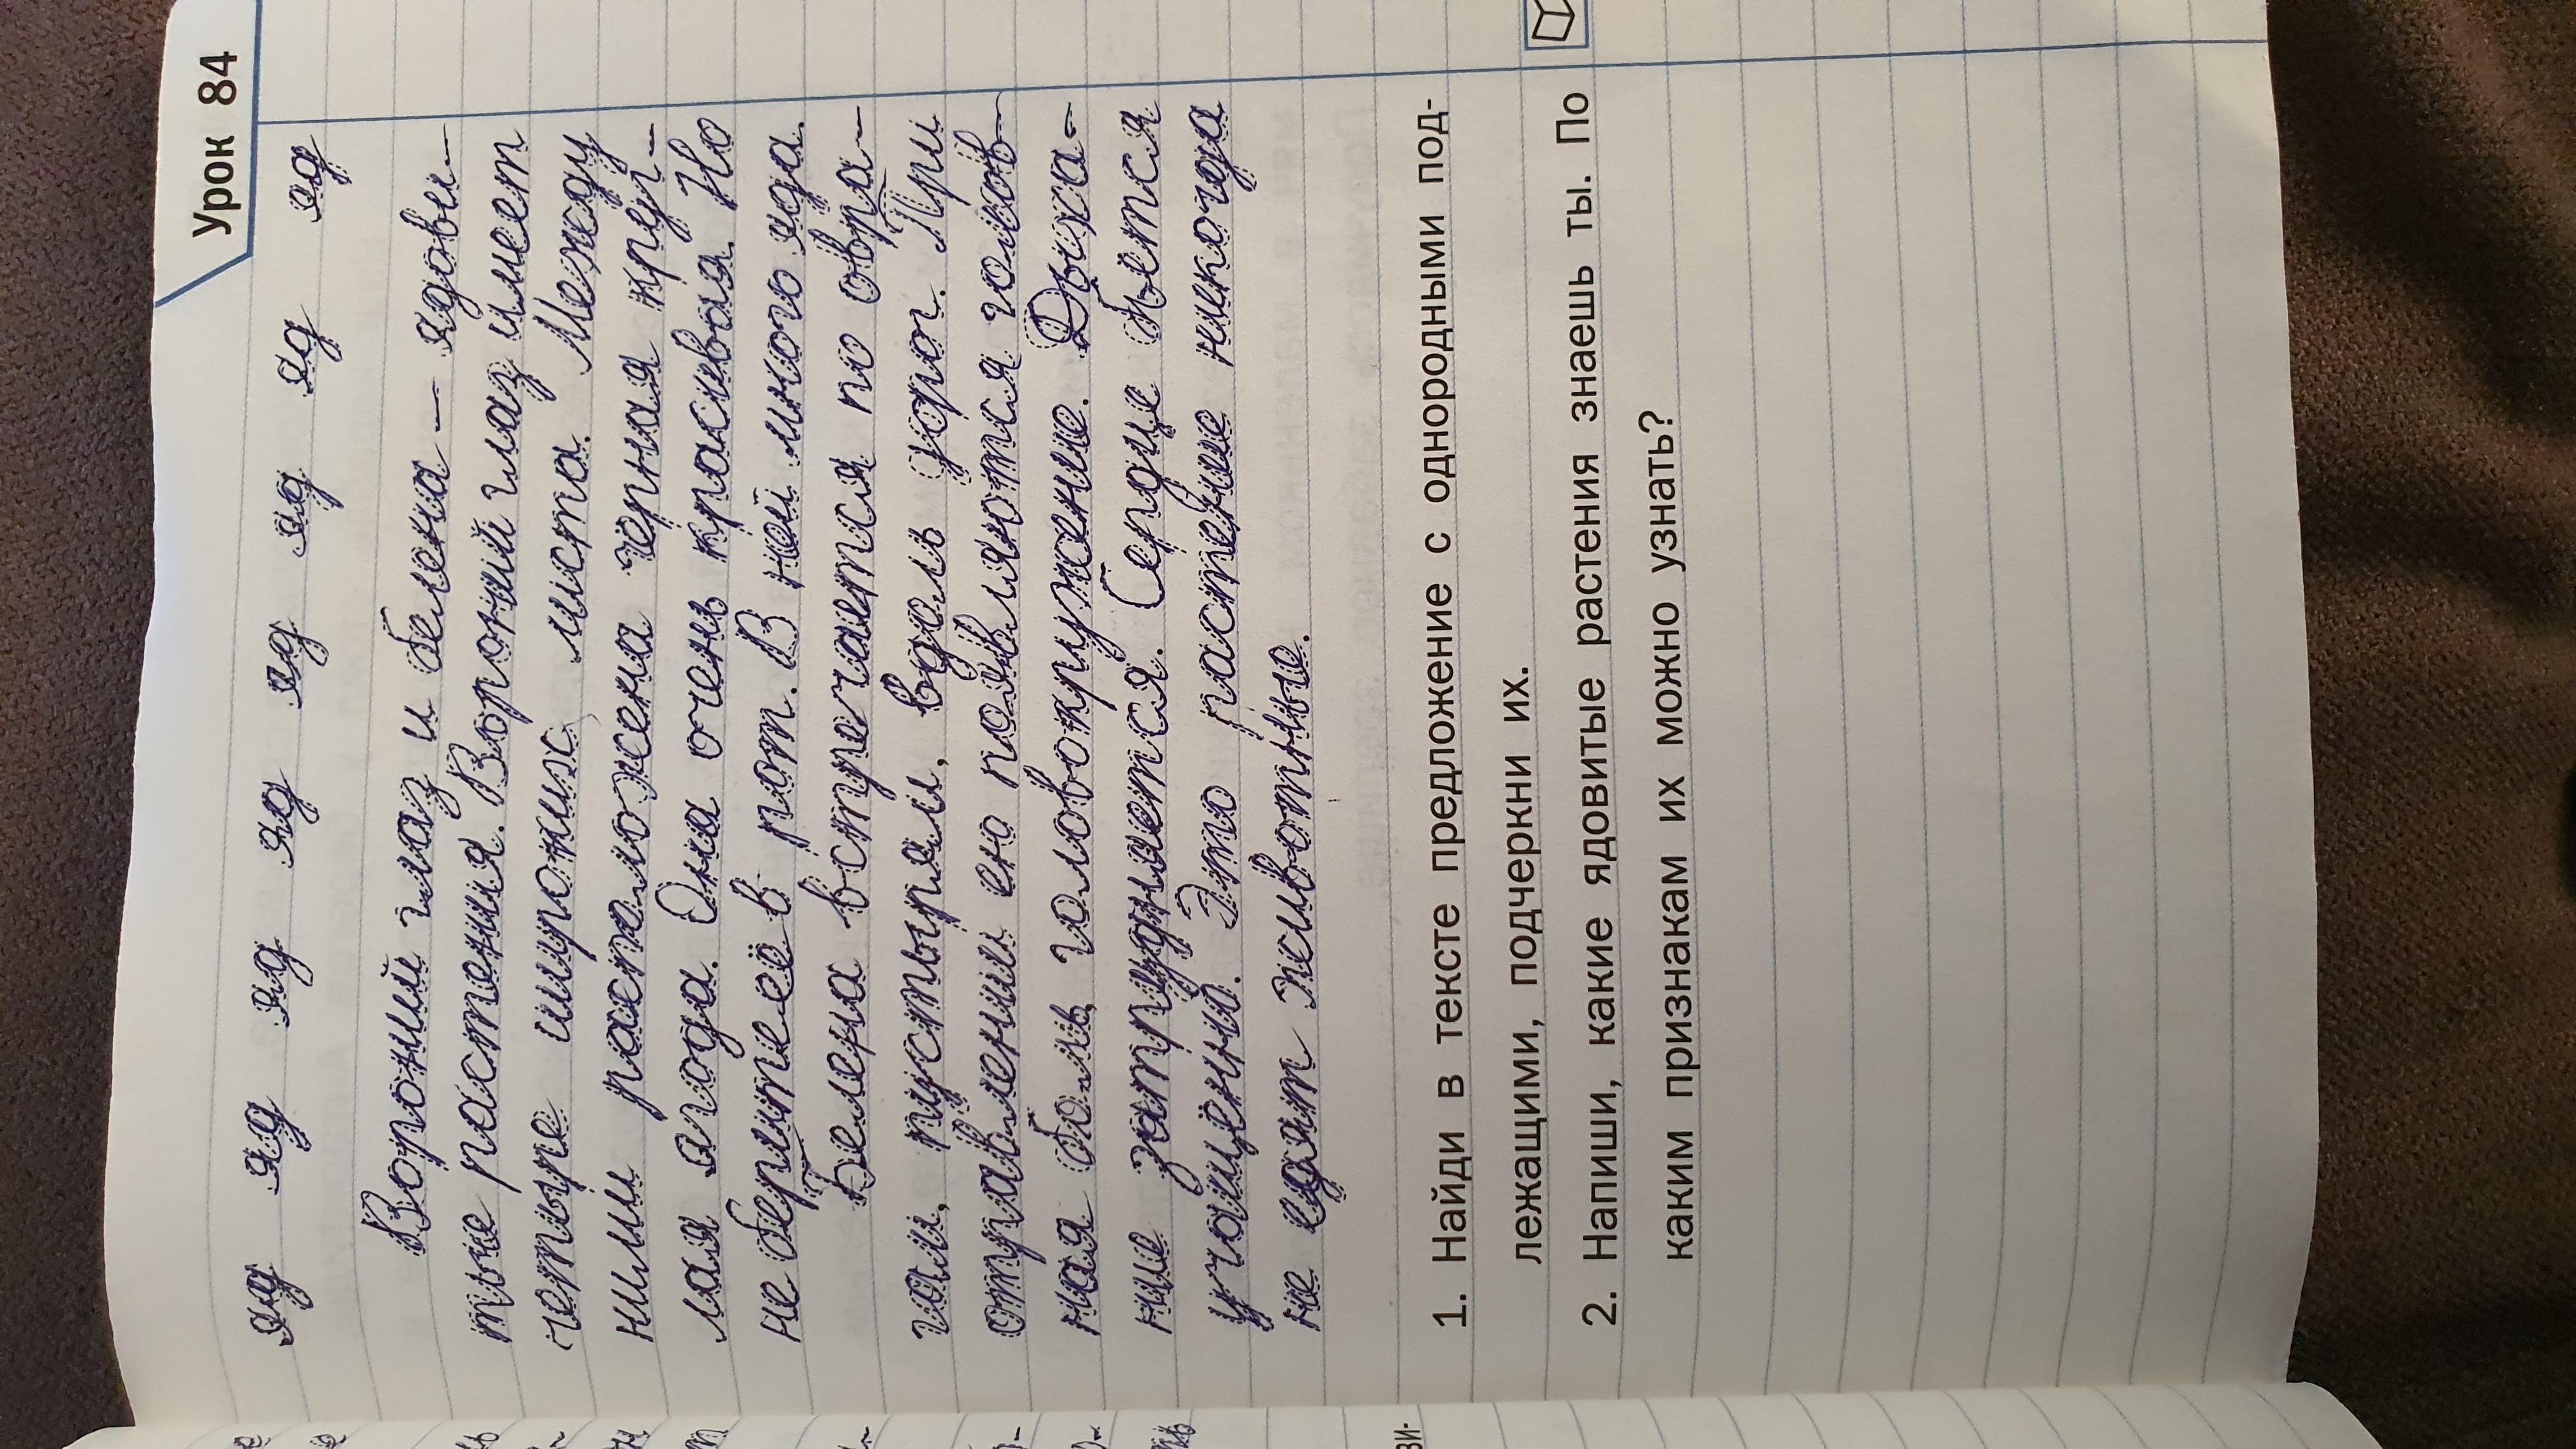 Урок 84
яд яд яд яд яд яд яд яд
Вороний глаз и белена – ядови-
тые растения. Вороний глаз имеет
четыре широких листа. Между
ними расположена черная круг-
лая ягода. Она очень красивая. Но
не берите её в рот. В ней много яда.
Белена встречается по овра-
гам, пустырям, вдоль дорог. При
отравлении ею появляются голов-
ная боль, головокружение. Дыха-
ние затрудняется. Сердце бьётся
учащённо. Это растение никогда
не едят животные.
1. Найди в тексте предложение с однородными под-
лежащими, подчеркни их.
2. Напиши, какие ядовитые растения знаешь ты. По
каким признакам их можно узнать?